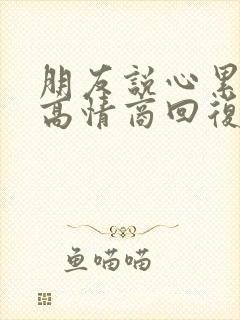 朋友說心累
高情商回復
鱼喵喵